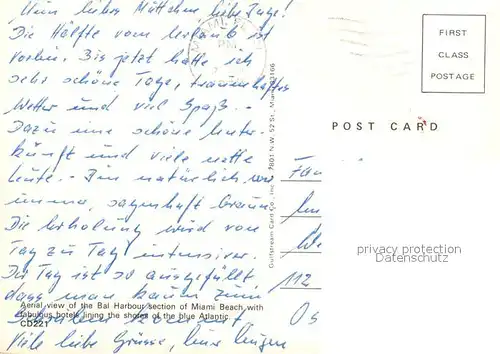 Mein liebes Muttchen, liebe Inge!
Die Hälfte vom Urlaub ist
vorbei. Bis jetzt hatte ich
sehr schöne Tage, traumhaftes
Wetter und viel Spaß. -
Dazu eine schöne Unter-
kunft und viele nette
Leute. - Bin natürlich, wie
immer, sagenhaft braun.
Die Erholung wird von
Tag zu Tag intensiver.
Der Tag ist so ausgefüllt,
dass man kaum zum
Schreiben kommt
Viele liebe Grüsse,
Aerial view of the Bal Harbour section of Miami Beach with
fabulous hotels lining the shores of the blue Atlantic.
CD221
Gulfstream Card Co., Inc., 7801 N.W. 52 St., Miami 33166
PM
FIRST
CLASS
POSTAGE
POST CARD
112
privacy protection
Datenschutz